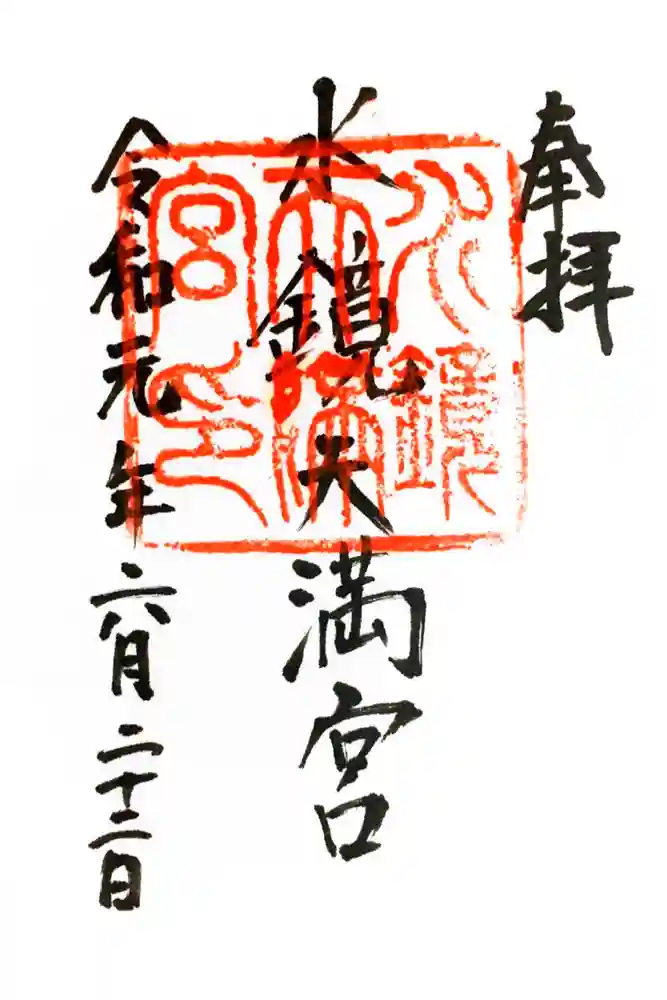 奉拝
水鏡天満宮
水鏡天満宮印
令和元年六月二十二日